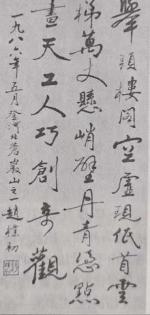 擧頭樓閣空虛現低首雲
梯萬丈懸峭壁丹青悠點
畫天工人巧創奇觀
一九八六年五月登河北蒼巖山之一趙樸初